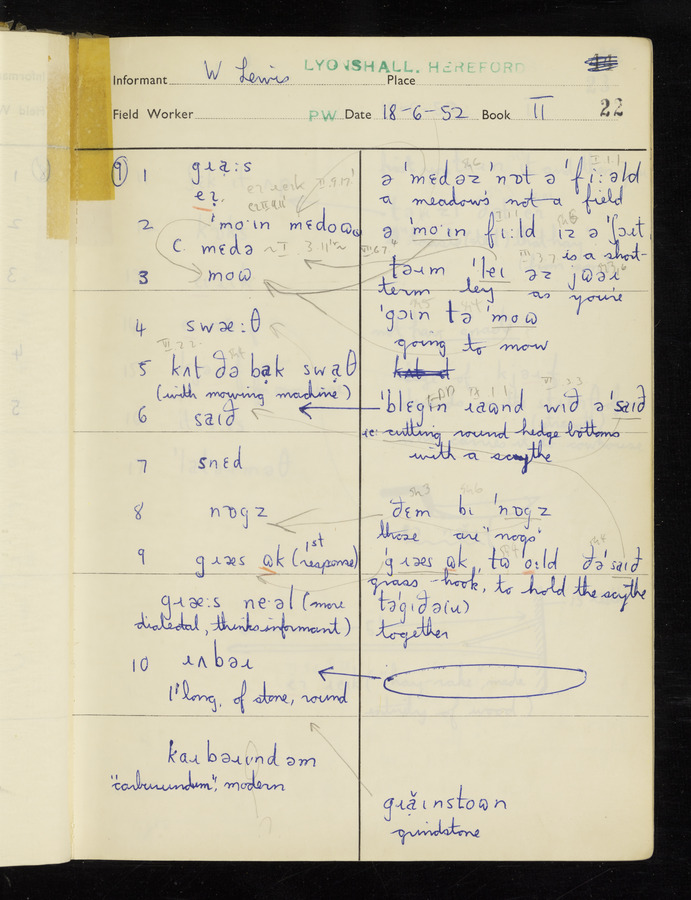 LYONSHALL, HEREFORD
Informant W Lewis Place
Field Worker PW Date 18-6-52 Book II 22
9 1 gɹa̤:s
2 ˈmo·ɪn mɛdoɷ
C. mɛdə
3 moɷ
4 swæ:θ
5 kʌt ðə ba̤k swa̤θ
(with mowing machine)
6 saɪð
7 snɛd
8 nɒgz
9 gɹæs ɷk (1st response)
gɹæ:s ne·əl (more
dialectal, thinks informant)
10 ɹʌbəɹ
1' long, of stone, round
kaɹbəɹʊndəm
"carburundum", modern
ə ˈmɛdəz ˈnɒt ə ˈfi:əld
a meadow's not a field
ə ˈmo·ɪn fi:ld ɪz ə ˈʃɔɹt
is a short-
təɹm ˈleɪ əz jɷəɹ
term ley as you're
ˈgɔɪn tə ˈmoɷ
going to mow
ˈblɛgɪn ɹaɷnd wɪð ə ˈsaɪð
ie. cutting round hedge bottoms
with a scythe
ˈðɛm bɪ ˈnɒgz
those are "nogs"
ˈgɹæs ɷk, tə o:ld ðə ˈsaɪð
grass-hook, to hold the scythe
təgɪðə(ɹ)
together
gɹə̆ɪnstoɷn
grindstone